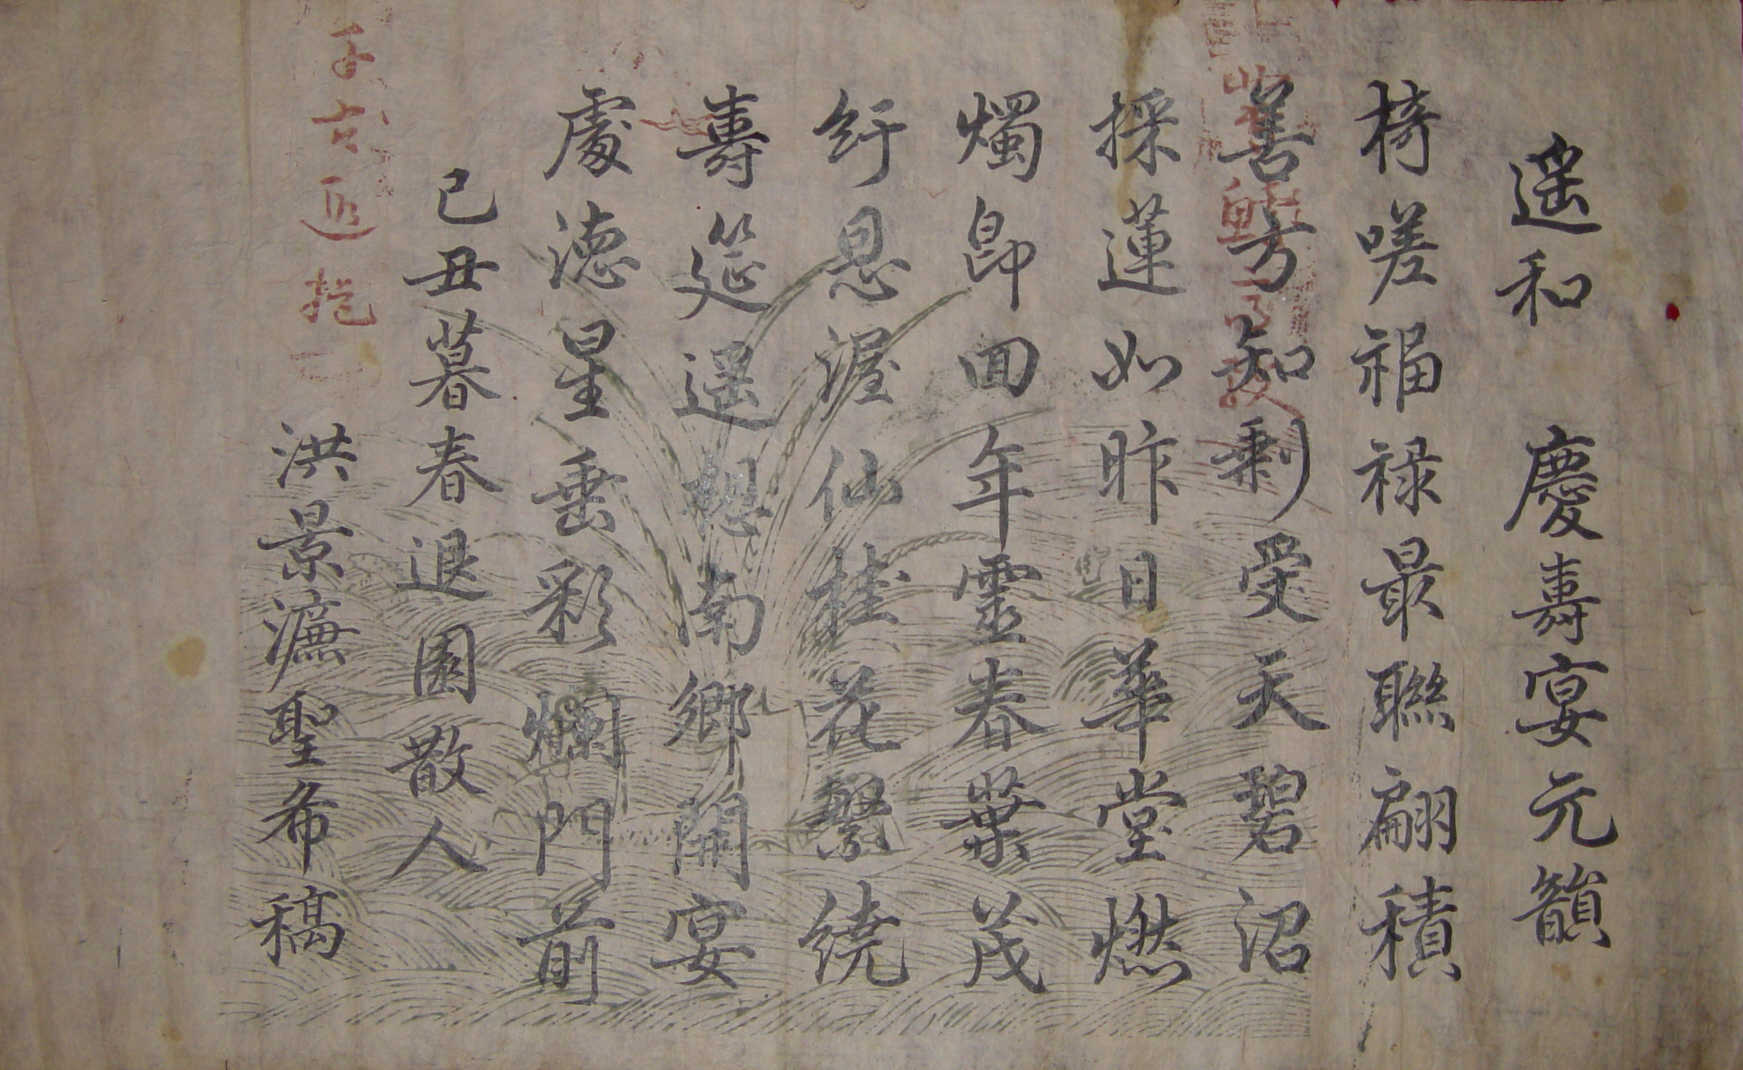 遥和 慶壽宴元韻
猗嗟福祿最聯翩積
善方知剩受天碧沼
採蓮如昨日華堂燃
燭即回年靈春葉茂
紆恩渥仙桂花繁繞
壽筵遥想南鄉開宴
處德星垂彩爛門前
己丑暮春退圃散人
洪景濂聖希稿